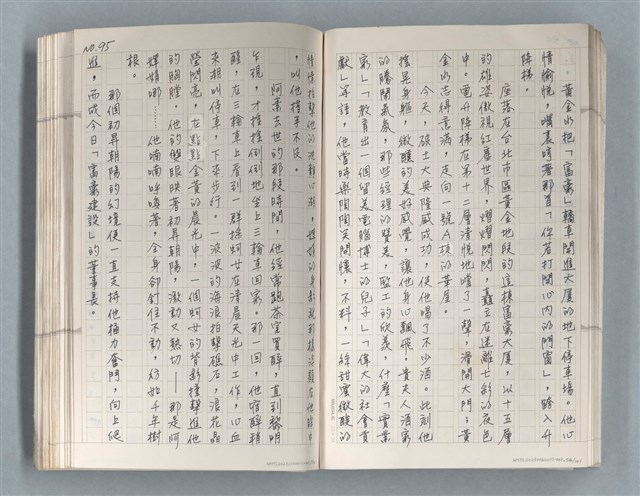 。黃金水把「富豪」轎車開進大廈的地下停車場。他心
情愉悅，嘴裏哼著那首「你若打開心內的門窗」，踏入升
降梯。
座落在台北市區黃金地段的這棟富豪大廈，以十五層
的雄姿傲視紅塵世界，燦爛閃閃，矗立在迷離七彩的夜色
中。電升降梯在第十二層清悅地噹了一聲，滑開大門；黃
金水志得意滿，走向一號A棟的華屋。
今天，碩士大典隆盛成功，使他喝了不少酒。此刻他
搖晃身軀，微醺的美好感覺，讓他身心飄飛。貴夫人酒宴
的騰鬧氣氛，那些經理的賛美，職工的欣羨，什麼「實業
家」「教育出一個留美電腦博士的兒子」「偉大的社會貢
獻」等語，他當時樂陶陶笑開懷，不料，一絲甜蜜微酸的
，叫他措手不及。
阿素去世的那段時間，他經常跑茶室買醉，直到黎明
乍現，才搖搖倒倒地坐上三輪車回家。那一回，他宿醉稍
醒，在三輪車上看到一群採蚵女在清晨天光中工作，心血
來潮叫停車，下來步行。一波波的海浪拍擊礁石，浪花晶
瑩閃亮，在點點金黃的晨光中，一個蚵女的背影撞擊進他
的胸膛。他的雙眼映著初昇朝陽，激動又熱切——那是阿
輝娘哪……他喃喃呼喚著，全身卻釘住不動，彷彿千年樹
根。
那個初昇朝陽的幻境便一直支持他極力奮鬥，向上促
進，而成今日「富豪建設」的董事長。
NO.95